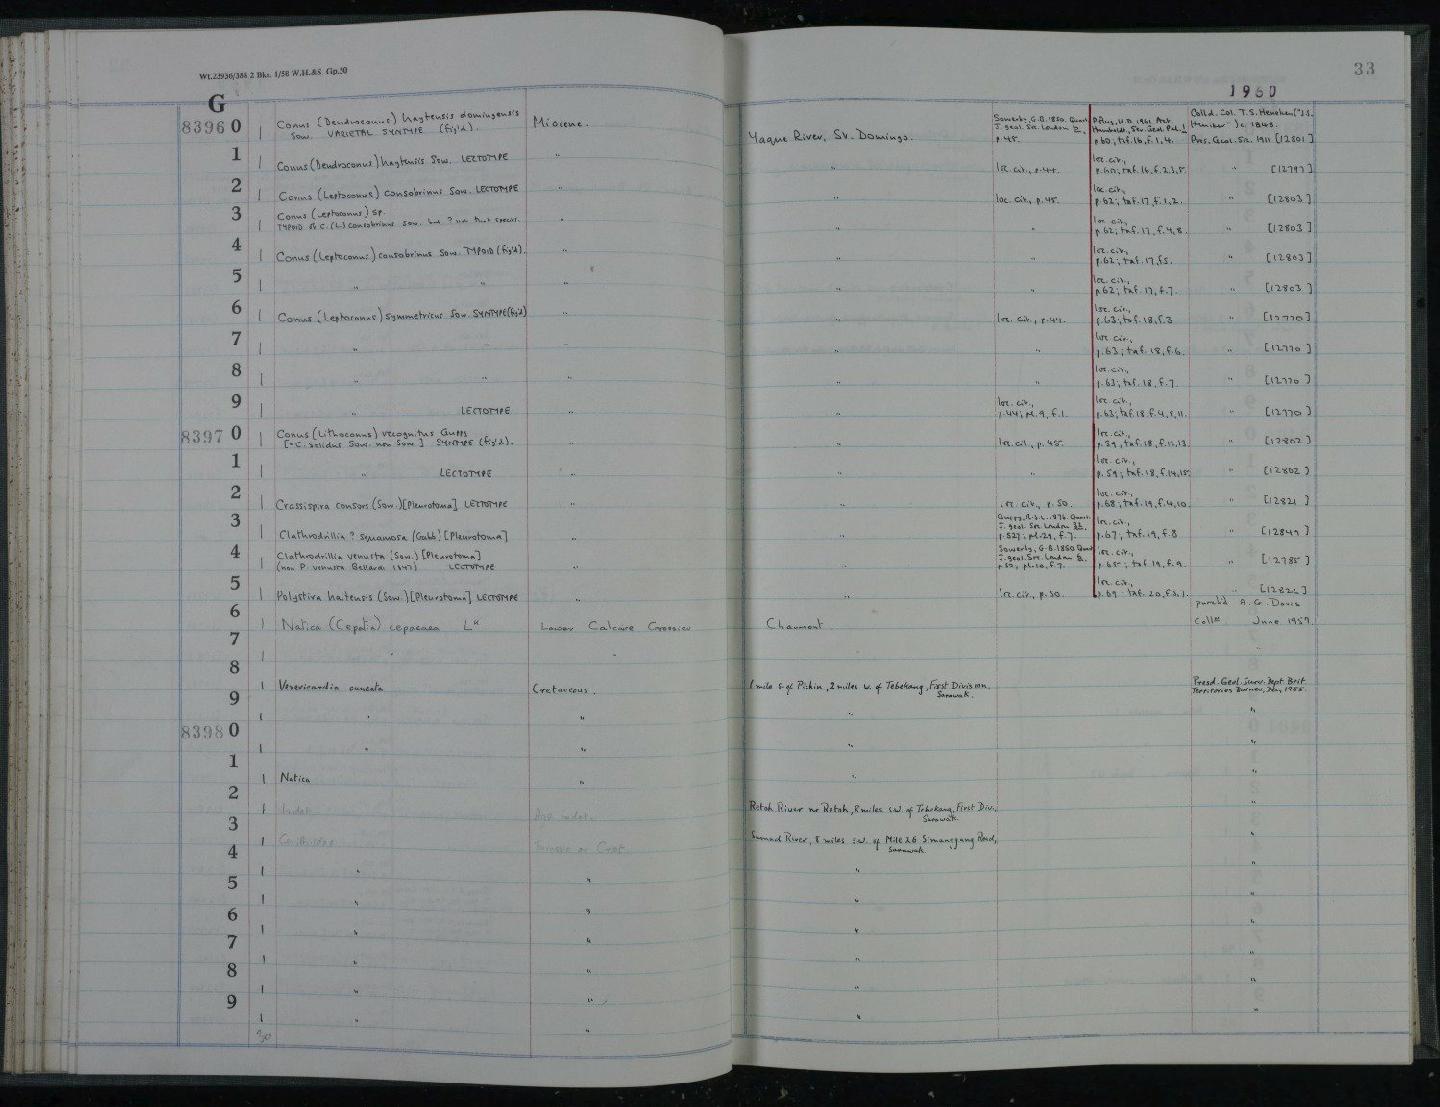 Wt.22936/388 2 Bks. 1/58 W.H.&S. Gp.50
33
1960
G
83960 1 Conus (Dendroconus) haytensis domingensis Miocene. Yaque River, St. Domingo. Sowerby, G.B. 1850. Quart. Pflug, H.D. 1961. Act Coll'd. Col. T.S. Heneken
Sow. VARIETAL SYNTYPE (fig'd). J. geol. Soc. London p.45. p.60; taf.16, f.1,4. c.1848. Pres. Geol. Soc. 1911 [12801]
1 1 Conus (Dendroconus) haytensis Sow. LECTOTYPE " " loc. cit., p.44. loc. cit., p.60; taf.16, f.2,3,5. " [12797]
2 1 Conus (Leptoconus) consobrinus Sow. LECTOTYPE " " loc. cit., p.45. loc. cit., p.62; taf.17, f.1,2. " [12803]
3 1 Conus (Leptoconus) sp. " " " loc. cit., p.62; taf.17, f.4,8. " [12803]
TYPOID of C. (L.) consobrinus Sow. but ? not that species.
4 1 Conus (Leptoconus) consobrinus Sow. TYPOID (fig'd). " " " loc. cit., p.62; taf.17, f.5. " [12803]
5 1 " " " " " loc. cit., p.62; taf.17, f.7. " [12803]
6 1 Conus (Leptoconus) symmetricus Sow. SYNTYPE (fig'd) " " loc. cit., p.44. loc. cit., p.63; taf.18, f.3 " [12770]
7 1 " " " " loc. cit., p.63; taf.18, f.6. " [12770]
8 1 " " " " " loc. cit., p.63; taf.18, f.7. " [12770]
9 1 " LECTOTYPE " " loc. cit., p.44; pl.9, f.1. loc. cit., p.63; taf.18, f.4,5,11. " [12770]
83970 1 Conus (Lithoconus) recognitus Guppy " " loc. cit., p.45. loc. cit., p.59; taf.18, f.12,13. " [12802]
[=C. solidus Sow. non Sow.] SYNTYPE (fig'd).
1 1 " LECTOTYPE " " " loc. cit., p.59; taf.18, f.14,15. " [12802]
2 1 Crassispira consors (Sow.) [Pleurotoma] LECTOTYPE " " loc. cit., p.50. loc. cit., p.68; taf.19, f.4,10. " [12821]
3 1 Clathrodrillia ? squamosa (Gabb) [Pleurotoma] " Guppy, R.J.L. 1876. Quart. J. geol. Soc. London 32 p.527; pl.29, f.7. loc. cit., p.67; taf.19, f.8 " [12849]
4 1 Clathrodrillia venusta (Sow.) [Pleurotoma] " " Sowerby, G.B. 1850 Quart J. geol. Soc. London 6. p.50; pl.10, f.7. loc. cit., p.65; taf.19, f.9. " [12785]
(non P. venusta Bellardi 1847) LECTOTYPE
5 1 Polystira haitensis (Sow.) [Pleurotoma] LECTOTYPE " " loc. cit., p.50. loc. cit., p.69; taf.20, f.3,1. " [12822]
6 1 Natica (Cepatia) cepacaea Lk Lower Calcaire Grossier Chaumont. purch'd A. G. Davis Colln June 1957.
7 1 " " "
8 1 Venericardia cuneata Cretaceous. 1 mile S. of Piskin, 2 miles W. of Tebekang, First Division, Sarawak. Presd. Geol. Surv. Dept. Brit Territories Borneo, 1955.
9 1 " " " "
83980 1 " " " "
1 1 Natica " " "
2 1 Indet. Age indet. Retoh River nr Retoh, 8 miles S.W. of Tebekang, First Div., Sarawak. "
3 1 Jurassic or Cret. Sumad River, 8 miles S.W. of Mile 26 Simanggang Road, Sarawak. "
4 1 " " " "
5 1 " " " "
6 1 " " " "
7 1 " " " "
8 1 " " " "
9 1 " " " "